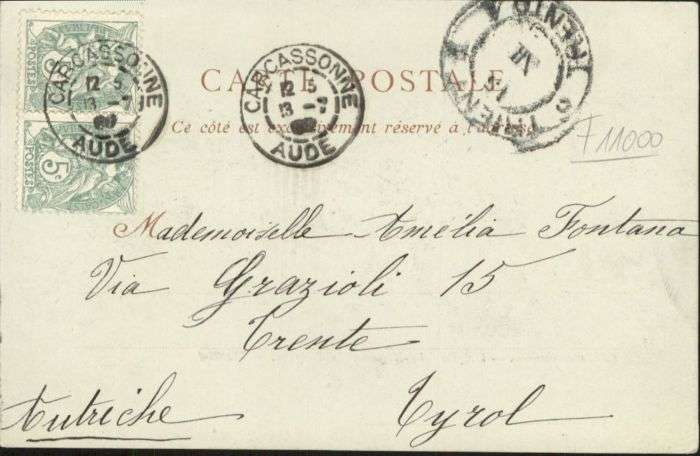 CARTE POSTALE
Ce côté est exclusivement réservé à l'adresse
CARCASSONNE
12 5
13 -7
AUDE
CARCASSONNE
12 5
13 -7
AUDE
5
POSTES
F 11000
Mademoiselle Amélia Fontana
Via Grazioli 15
Trente
Autriche Tyrol